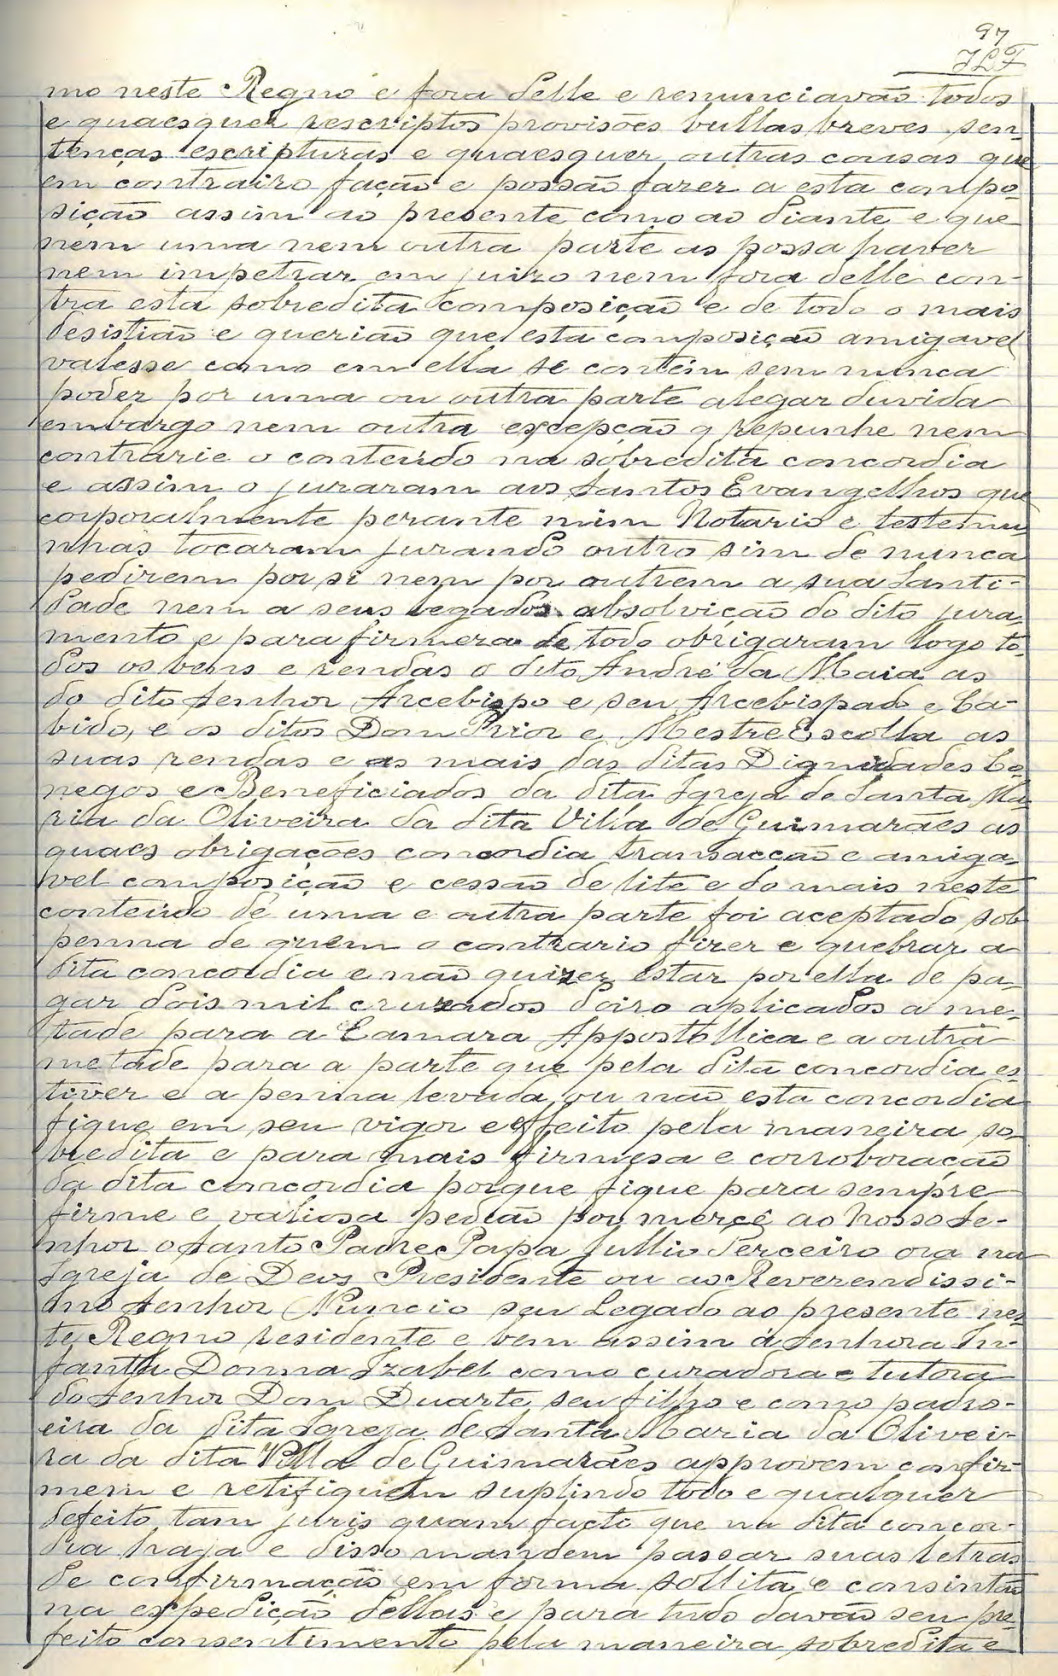 97
JLF
mo neste Regno e fora delle e renunciavão todos
e quaesquer rescriptos provisões bullas breves sen-
tenças escripturas e quaesquer outras cousas que
em contrairo fação e possão fazer a esta compo-
sição assim ao presente como ao diante e que
nem uma nem outra parte as possa haver
nem impetrar em juizo nem fora delle con-
tra esta sobredita composição e de todo o mais
desistião e querião que esta composição amigavel
valesse como em ella se contem sem nunca
poder por uma ou outra parte alegar duvida
embargo nem outra excepção q repunhe nem
contrarie o conteúdo na sobredita concordia
e assim o juraram aos Santos Evangelhos que
corporalmente perante mim Notario e testemu-
nhas tocaram jurando outro sim de nunca
pedirem por si nem por outrem a sua Santi-
dade nem a seus legados absolvição do dito jura
mento e para firmeza de todo obrigaram logo to-
dos os bens e rendas o dito André da Maia as
do dito Senhor Arcebispo e seu Arcebispado e Ca-
bido, e os ditos Dom Prior e Mestre Escolla as
suas rendas e as mais das ditas Dignidades Co-
negos e Beneficiados da dita Igreja de Santa Ma
ria da Oliveira da dita Villa de Guimarães as
quaes obrigações concordia transacção e amiga-
vel composição e cessão de lite e do mais neste
conteúdo de uma e outra parte foi aceptado sob
penna de quem o contrario fizer e quebrar a
dita concordia e não quizer estar por ella de pa-
gar dois mil cruzados doiro aplicados a me-
tade para a Camara Appostollica e a outra
metade para a parte que pela dita concordia es-
tiver e a penna levada, ou não esta concordia
fique em seu vigor e effeito pela maneira so-
bredita e para mais firmesa e corroboração
da dita concordia porque fique para sempre
firme e valiosa pedião por mercê ao nosso Se-
nhor o Santo Padre Papa Jullio Terceiro ora na
Igreja de Deos Presidente ou ao Reverendissi-
mo Senhor Nuncio seu Legado ao presente nes-
te Regno residente e bem assim á Senhora In-
fanta Donna Izabel como curadora e tutora
do Senhor Dom Duarte seu filho e como padro-
eira da dita Igreja de Santa Maria da Olivei-
ra da dita Villa de Guimarães approvem confir-
mem e retifiquem suplindo todo e qualquer
defeito tam juris quam facti que na dita concor-
dia haja e disso mandem passar suas letras
de confirmação em forma sollita e consintão
na expedição dellas e para tudo davão seu per-
feito consentimento pela maneira sobredita e